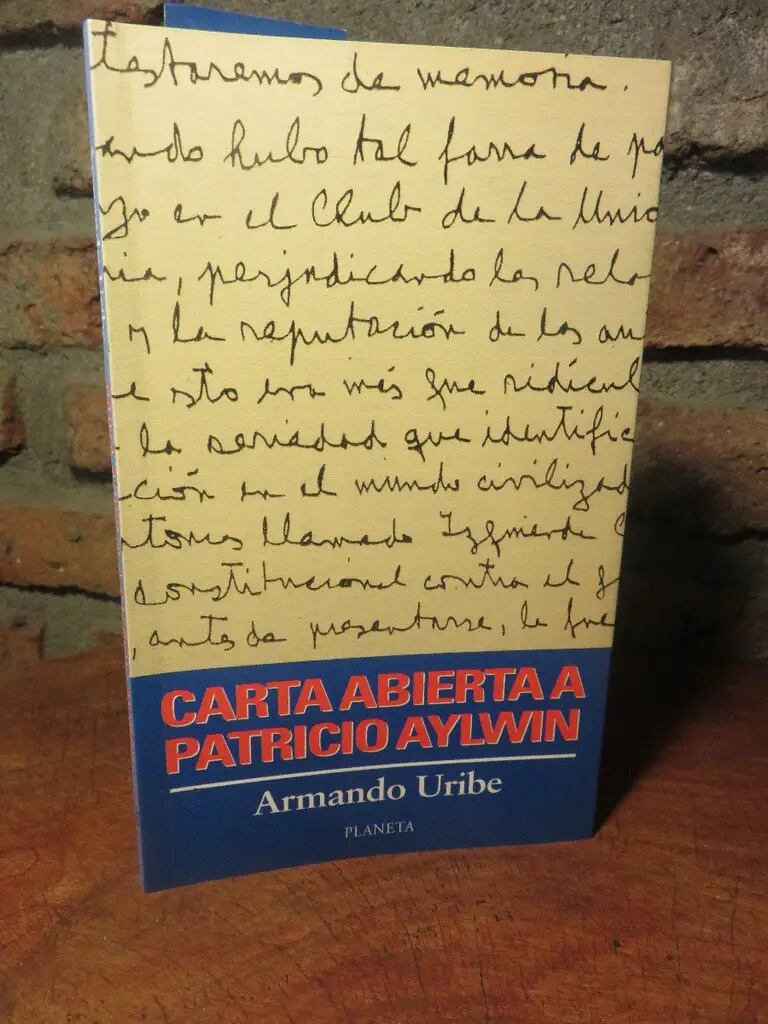 testaremos de memoria.
ando hubo tal farra de pa
zo en el Club de la Unio
ria, perjudicando las rela
y la reputación de los au
e sto era más que ridícul
la seriedad que identific
ción en el mundo civilizad
llamado Izquierda C
constitucional contra el g
, antes de presentarse, le fue
CARTA ABIERTA A
PATRICIO AYLWIN
Armando Uribe
PLANETA